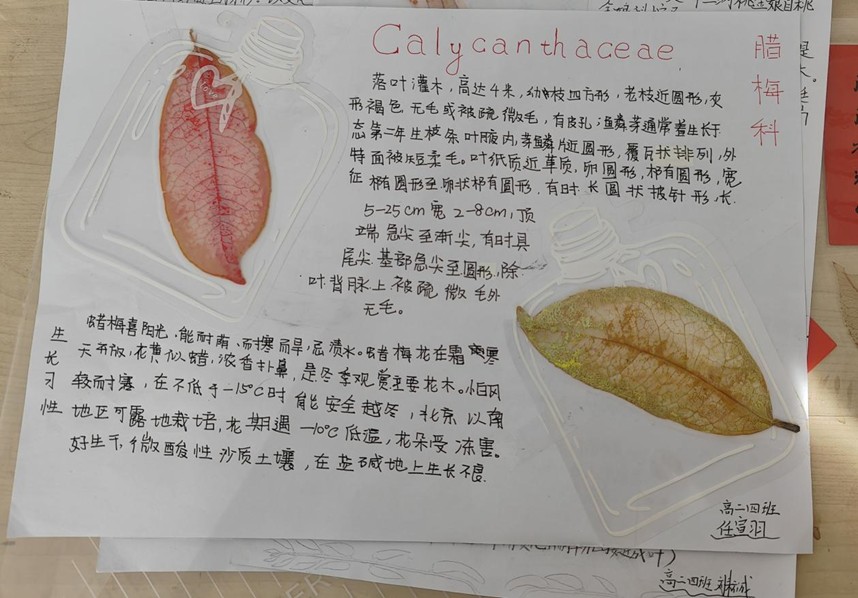 Calycanthaceae
腊梅科
落叶灌木，高达4米，幼枝四方形，老枝近圆形，灰
形褐色，无毛或被疏微毛，有皮孔；鳞芽通常着生长于
态第二年生枝条叶腋内，芽鳞片近圆形，覆瓦状排列，外
特面被短柔毛。叶纸质近革质，卵圆形，椭有圆形，宽
征椭圆形至卵状椭有圆形，有时长圆状披针形，长
5-25cm宽2-8cm，顶
端急尖至渐尖，有时具
尾尖，基部急尖至圆形，除
叶背脉上被疏微毛外
无毛。
生长习性
蜡梅喜阳光，能耐荫、耐寒而旱，忌渍水。蜡梅花在霜寒
天开放，花黄似蜡，浓香扑鼻，是冬季观赏主要花木。怕风
较耐寒，在不低于-15℃时能安全越冬，北京以南
地区可露地栽培，花期遇-10℃低温，花朵受冻害。
好生于微酸性沙质土壤，在盐碱地上生长不良
高二四班
任宣羽
高二四班